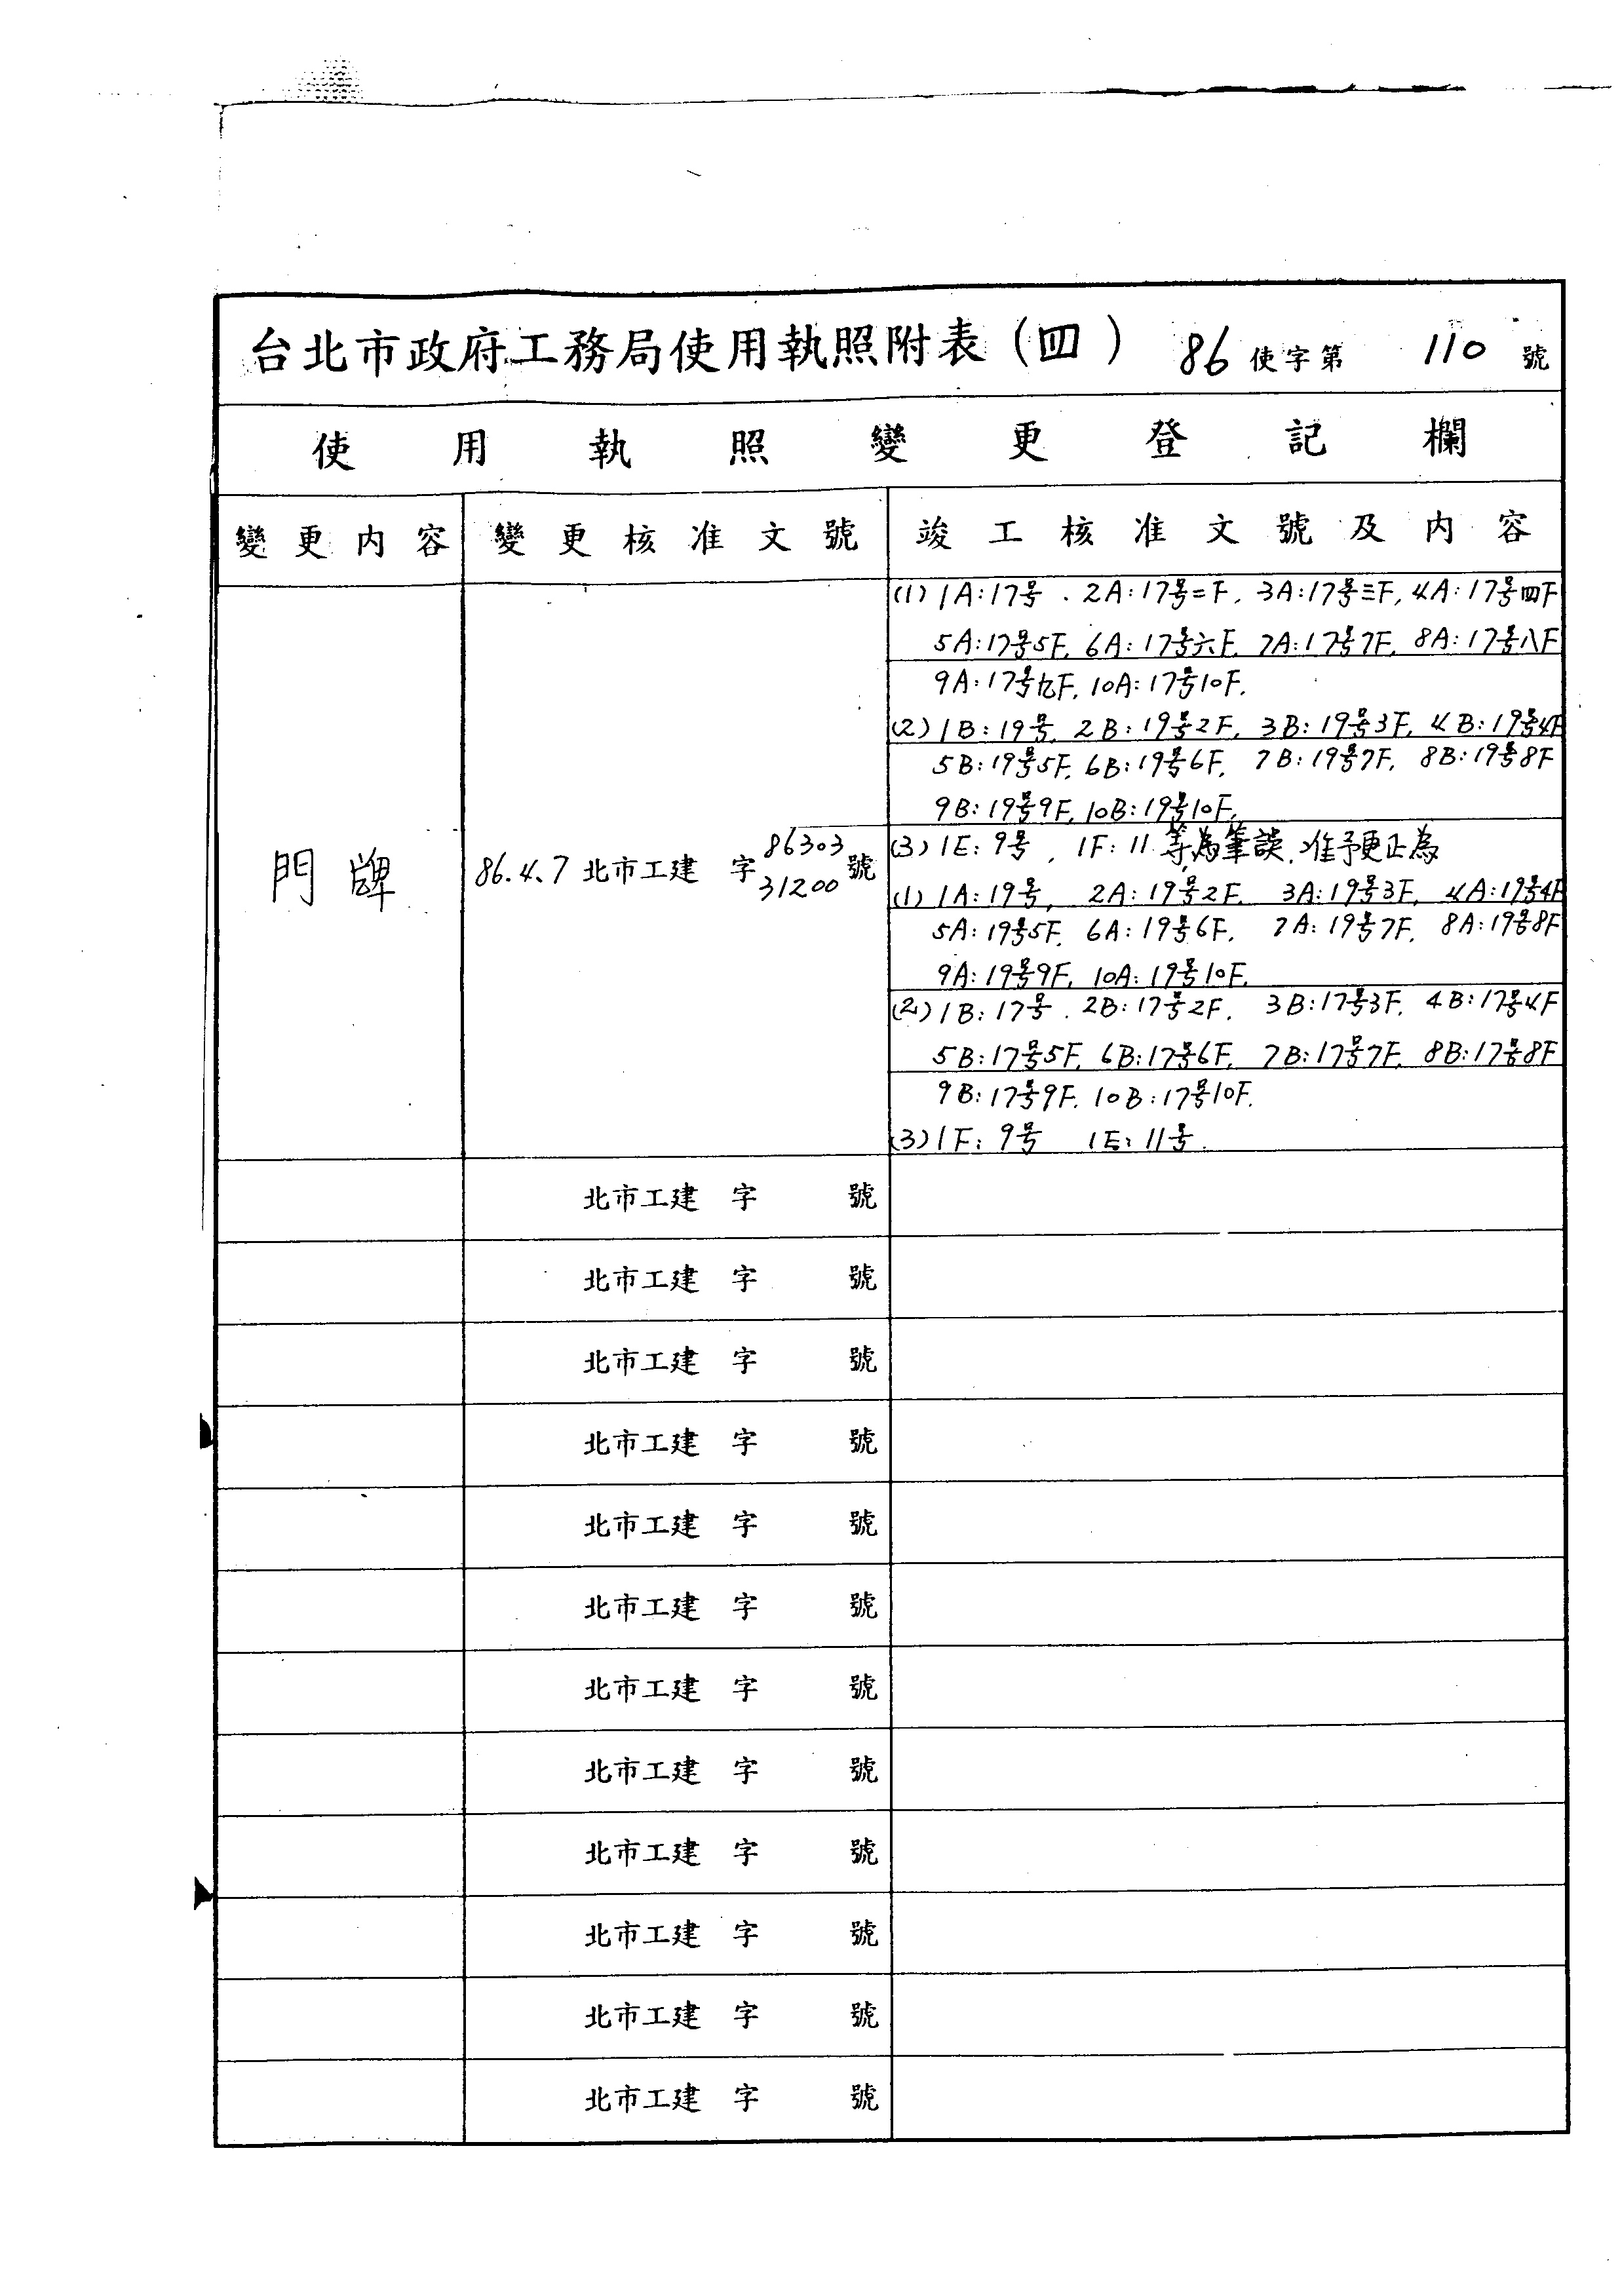 台北市政府工務局使用執照附表（四） 86 使字第 110 號
使用執照變更登記欄
變更內容 變更核准文號 竣工核准文號及內容
(1) 1A:17号、2A:17号二F, 3A:17号三F, 4A:17号四F
5A:17号5F, 6A:17号六F, 7A:17号7F, 8A:17号八F
9A:17号九F, 10A:17号10F.
(2) 1B:19号, 2B:19号2F, 3B:19号3F, 4B:19号4F
5B:19号5F, 6B:19号6F, 7B:19号7F, 8B:19号8F
9B:19号9F, 10B:19号10F,
(3) 1E:9号, 1F:11等為筆誤,准予更正為
門牌 86.4.7 北市工建 字 8630331200 號
(1) 1A:19号, 2A:19号2F, 3A:19号3F, 4A:19号4F
5A:19号5F, 6A:19号6F, 7A:19号7F, 8A:19号8F
9A:19号9F, 10A:19号10F.
(2) 1B:17号. 2B:17号2F, 3B:17号3F, 4B:17号4F
5B:17号5F, 6B:17号6F, 7B:17号7F, 8B:17号8F
9B:17号9F, 10B:17号10F.
(3) 1F:9号 1E:11号.
北市工建 字 號
北市工建 字 號
北市工建 字 號
北市工建 字 號
北市工建 字 號
北市工建 字 號
北市工建 字 號
北市工建 字 號
北市工建 字 號
北市工建 字 號
北市工建 字 號
北市工建 字 號